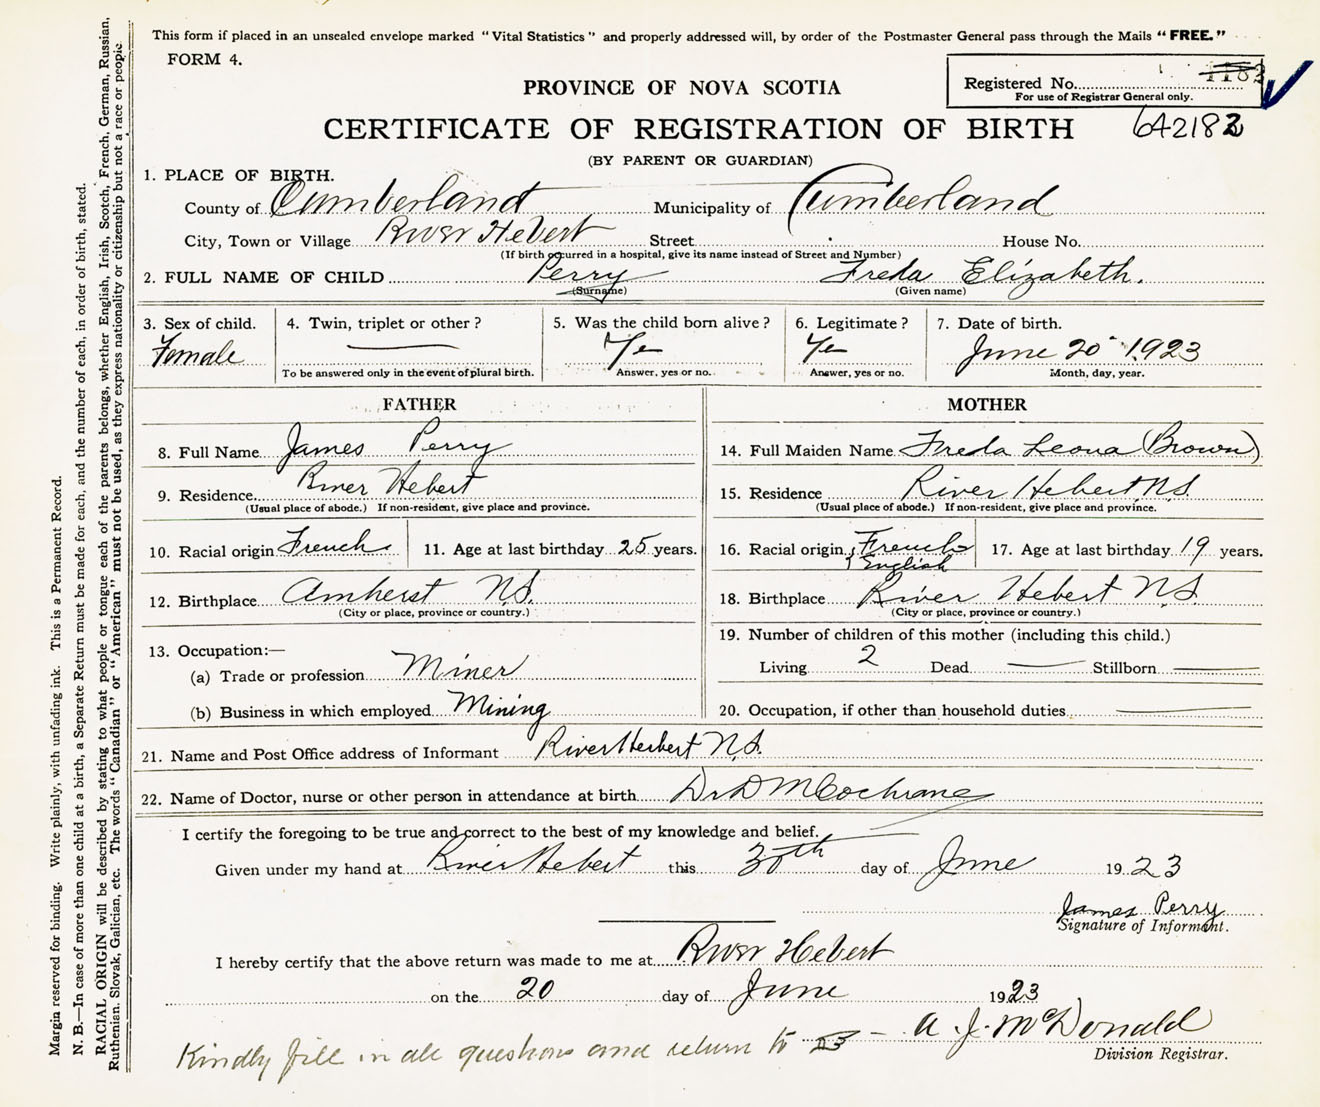 This form if placed in an unsealed envelope marked "Vital Statistics" and properly addressed will, by order of the Postmaster General pass through the Mails "FREE."
FORM 4.
Registered No. 1183
For use of Registrar General only.
PROVINCE OF NOVA SCOTIA
CERTIFICATE OF REGISTRATION OF BIRTH 642182
(BY PARENT OR GUARDIAN)
1. PLACE OF BIRTH.
County of Cumberland Municipality of Cumberland
City, Town or Village River Hebert Street House No.
(If birth occurred in a hospital, give its name instead of Street and Number)
2. FULL NAME OF CHILD Perry Freda Elizabeth.
(Surname) (Given name)
3. Sex of child. 4. Twin, triplet or other? 5. Was the child born alive? 6. Legitimate? 7. Date of birth.
Female Yes Yes June 20 1923
To be answered only in the event of plural birth. Answer, yes or no. Answer, yes or no. Month, day, year.
FATHER
8. Full Name James Perry
9. Residence River Hebert
(Usual place of abode.) If non-resident, give place and province.
10. Racial origin French 11. Age at last birthday 25 years.
12. Birthplace Amherst N.S.
(City or place, province or country.)
13. Occupation:—
(a) Trade or profession Miner
(b) Business in which employed Mining
MOTHER
14. Full Maiden Name Freda Leona (Brown)
15. Residence River Hebert N.S.
(Usual place of abode.) If non-resident, give place and province.
16. Racial origin French 17. Age at last birthday 19 years.
English
18. Birthplace River Hebert N.S.
(City or place, province or country.)
19. Number of children of this mother (including this child.)
Living 2 Dead Stillborn
20. Occupation, if other than household duties
21. Name and Post Office address of Informant River Herbert N.S.
22. Name of Doctor, nurse or other person in attendance at birth Dr D M Cochrane
I certify the foregoing to be true and correct to the best of my knowledge and belief.
Given under my hand at River Hebert this 30th day of June 1923
James Perry
Signature of Informant.
I hereby certify that the above return was made to me at River Hebert
on the 20 day of June 1923
A. J. McDonald
Division Registrar.
Kindly fill in all questions and return to
Margin reserved for binding. Write plainly, with unfading ink. This is a Permanent Record.
N. B.—In case of more than one child at a birth, a Separate Return must be made for each, and the number of each, in order of birth, stated.
RACIAL ORIGIN will be described by stating to what people or tongue each of the parents belongs, whether English, Irish, Scotch, French, German, Russian,
Ruthenian, Slovak, Galician, etc. The words "Canadian" or "American" must not be used, as they express nationality or citizenship but not a race or people.